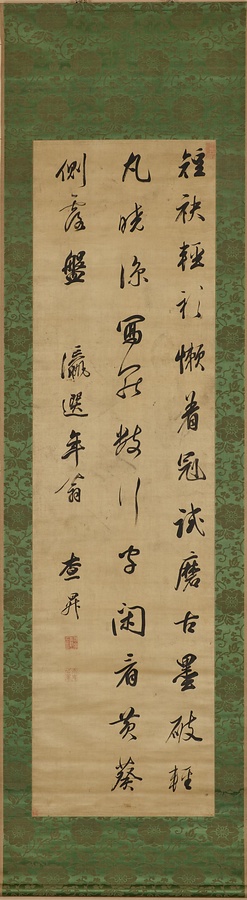 短袂輕衫懶着冠試磨古墨破輕
丸曉涼寫罷數行字閑看黃葵
側露盤 瀛選年翁 查昇